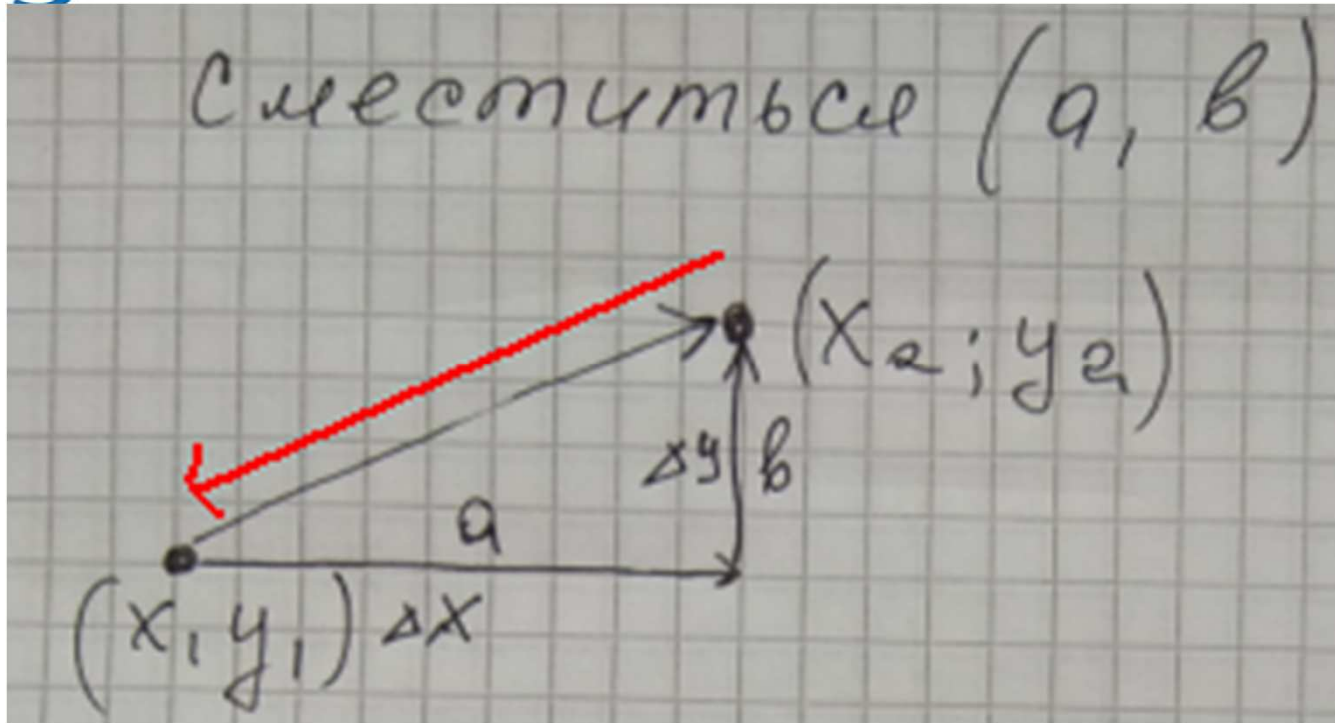 Сместиться (a, b)
(x₂; y₂)
Δy b
a
(x₁ y₁) Δx